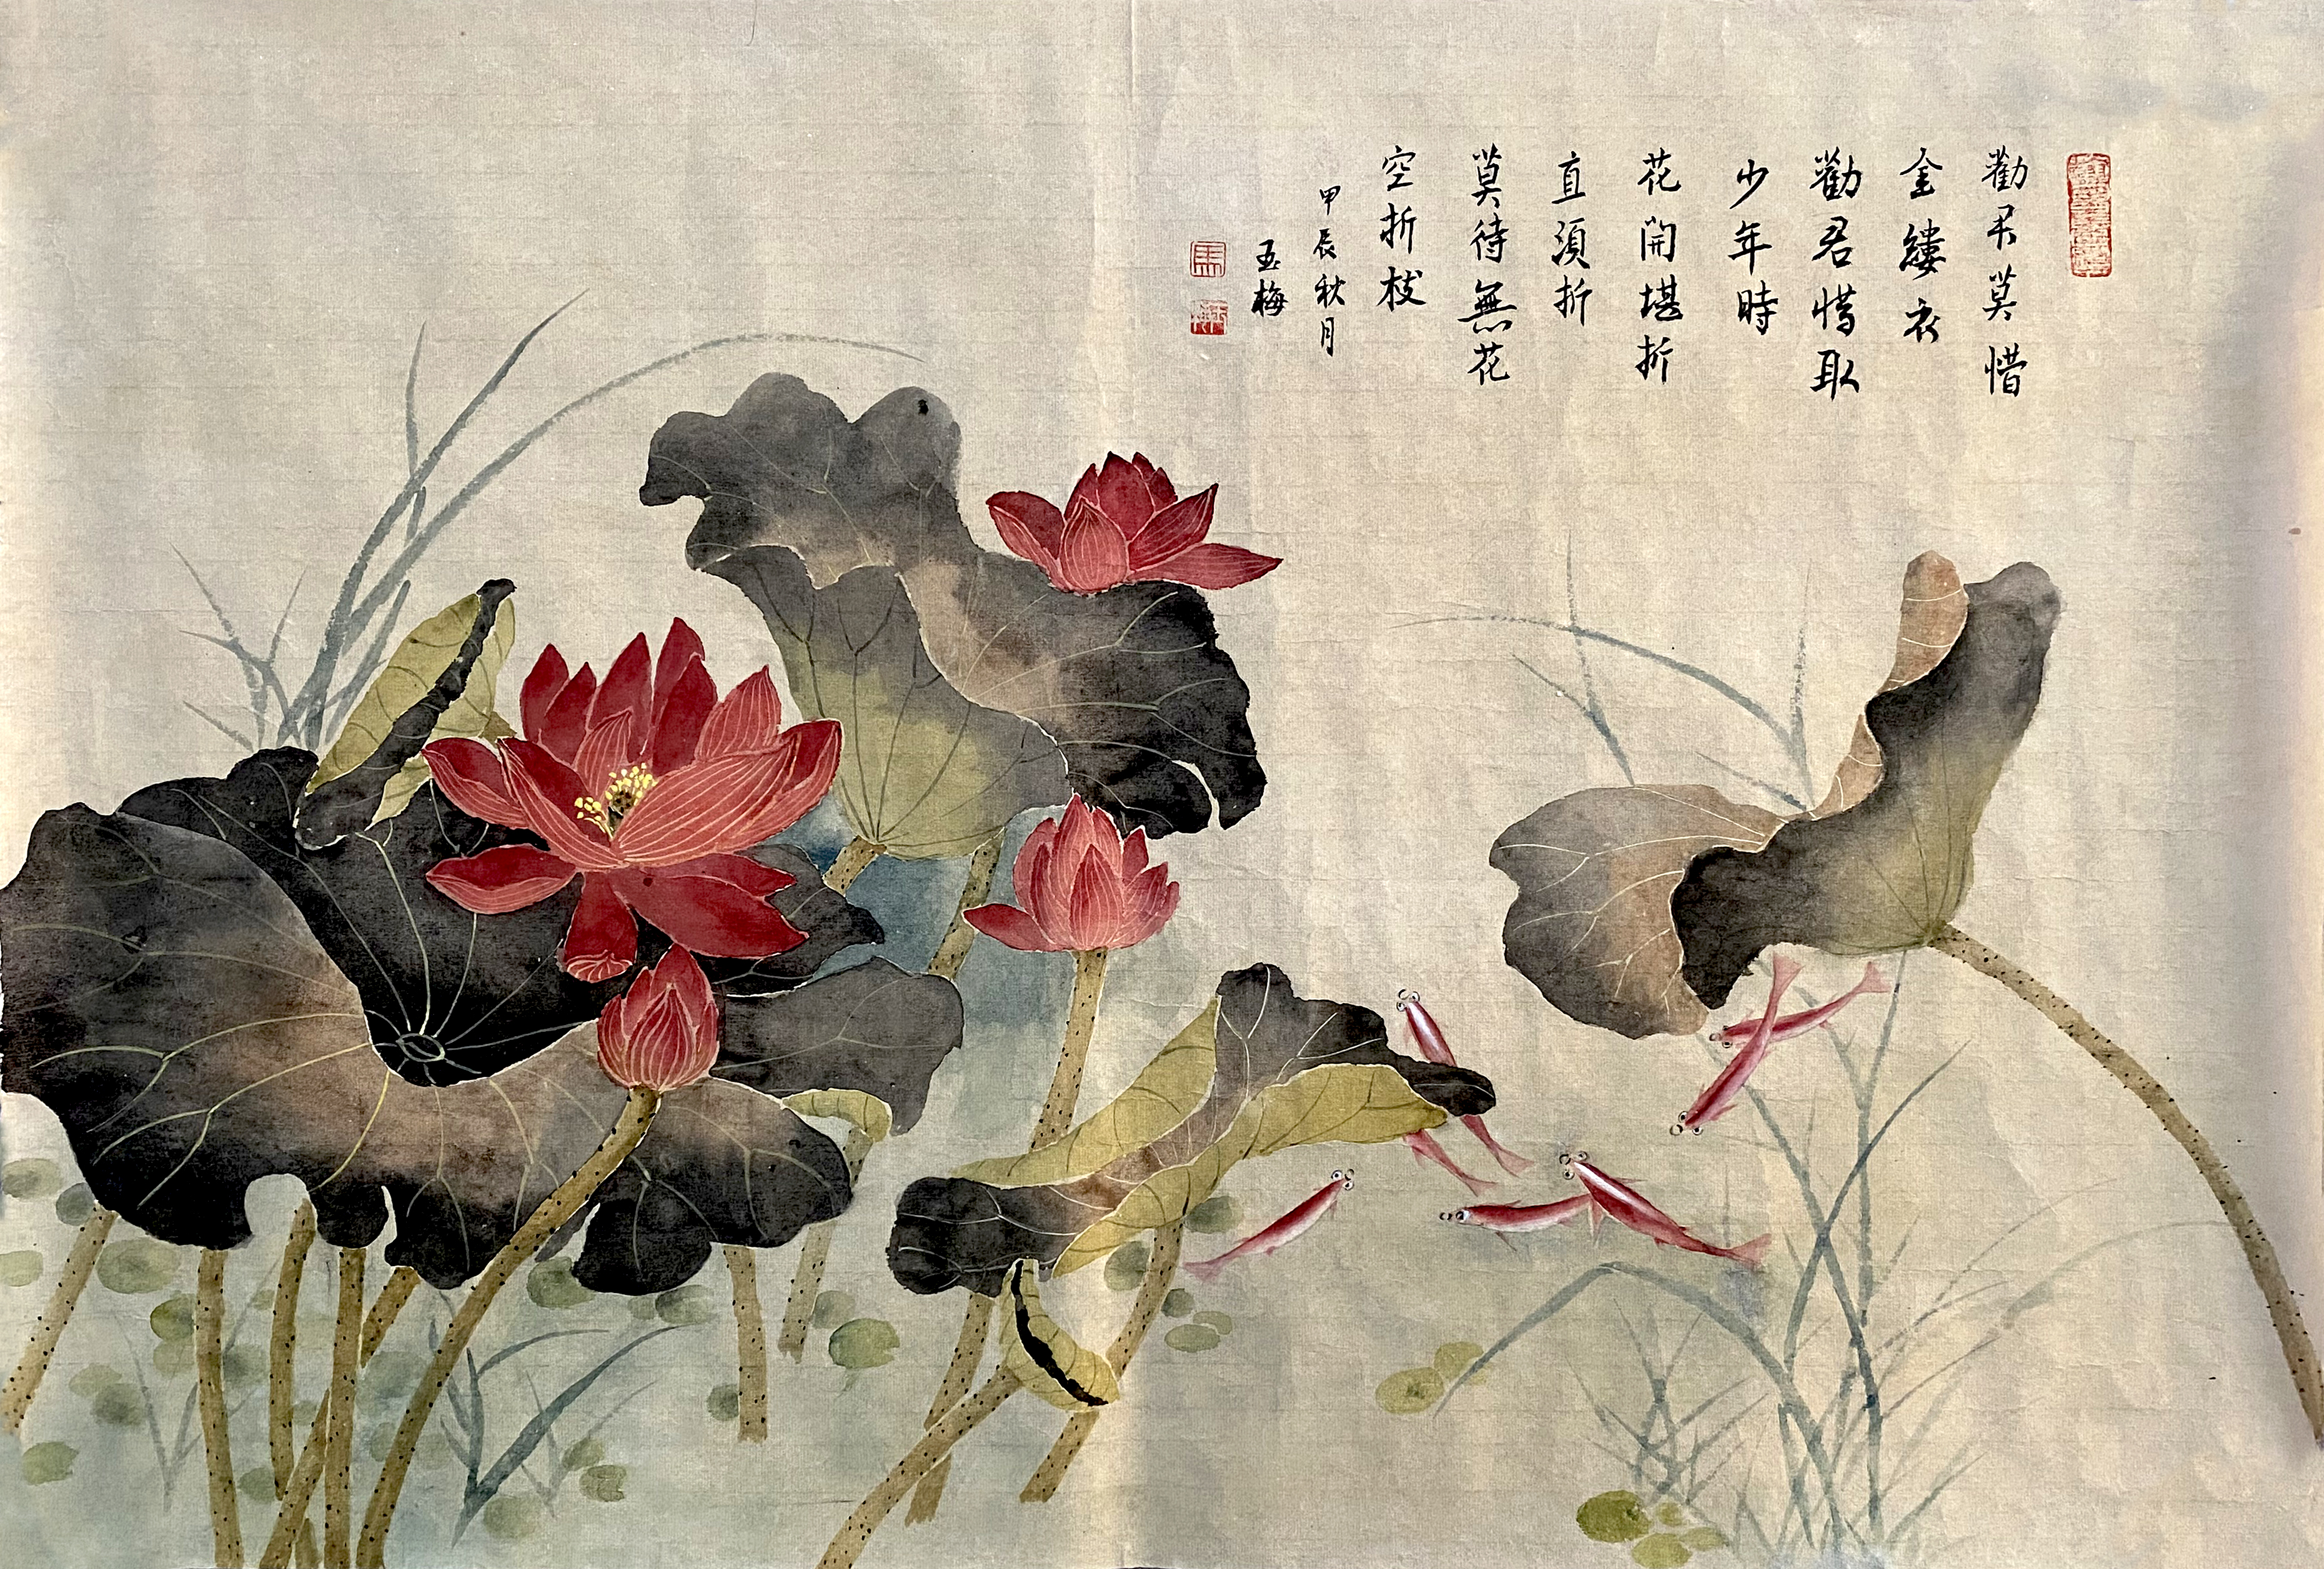 勸君莫惜
金縷衣
勸君惜取
少年時
花開堪折
直須折
莫待無花
空折枝
甲辰秋月
玉梅
馬